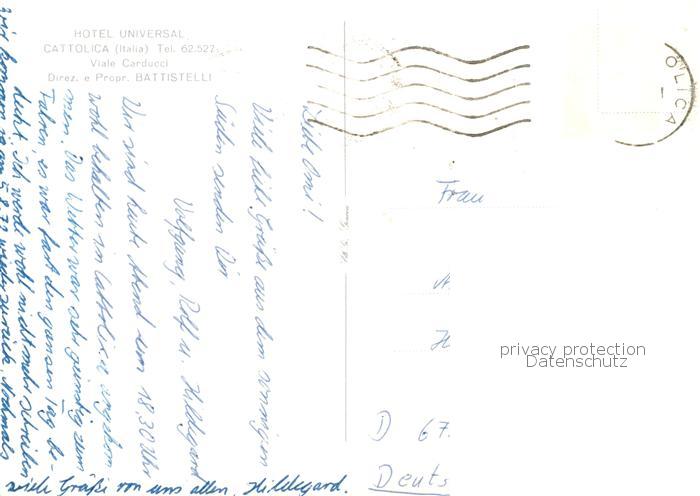 HOTEL UNIVERSAL
CATTOLICA (Italia) Tel. 62.527
Viale Carducci
Direz. e Propr. BATTISTELLI
OLICA
Liebe Omi!
Viele liebe Grüße aus dem sonnigen
Süden senden Dir
Wolfgang, Rolf u. Hildegard
Wir sind heute Abend um 18.30 Uhr
wohl behalten in Cattolica angekom
men. Das Wetter war sehr günstig zum
Fahren, es war fast den ganzen Tag be-
deckt. Ich werde wohl nicht mehr schreiben
wir kommen ja am 5.8.72 wieder zurück. Nochmals
viele Grüße von uns allen, Hildegard.
Frau
D 67.
Deuts
privacy protection
Datenschutz